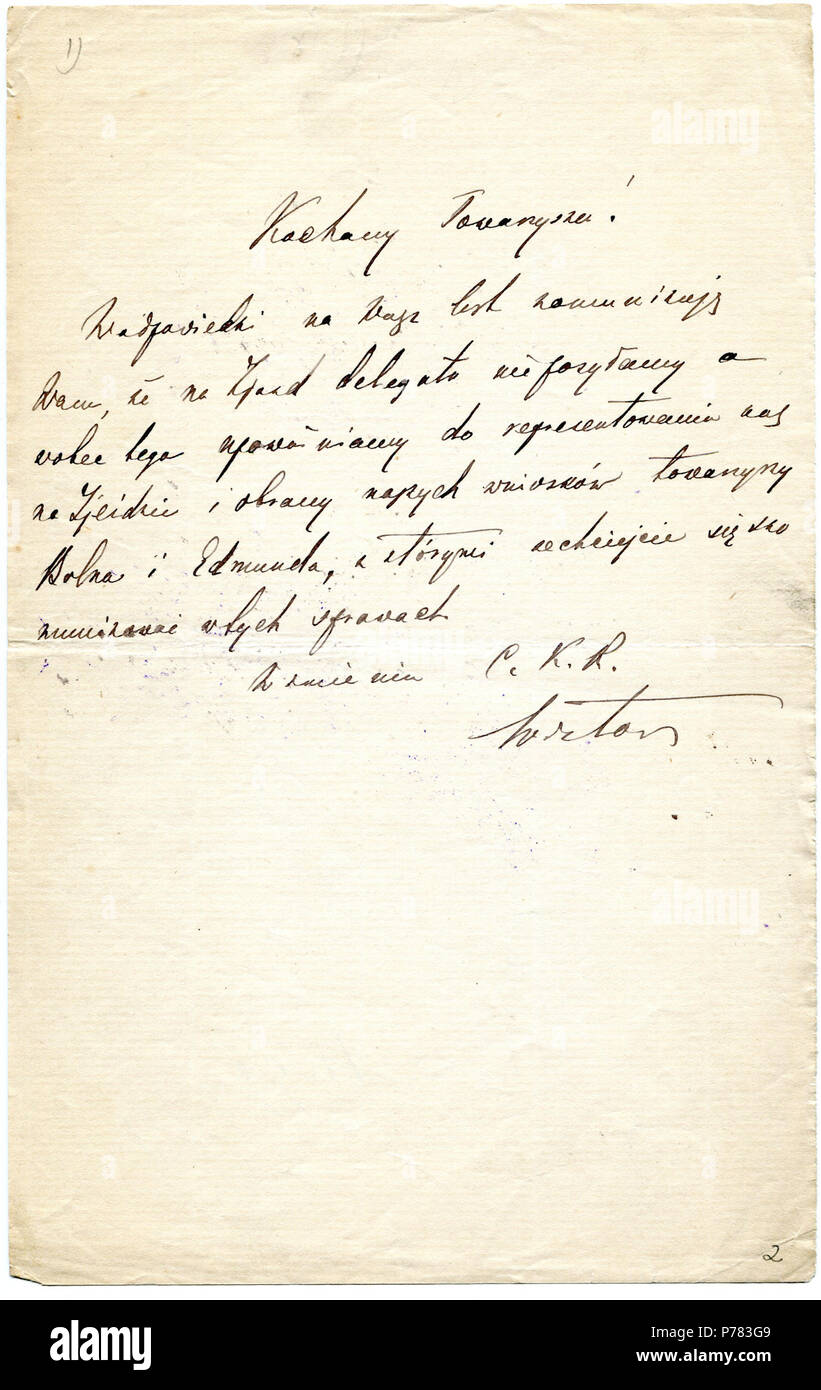 1)
Kochany Towarzyszu!
W odpowiedzi na Wasz list komunikuję
Wam, że na Zjazd delegata nie posyłamy a
wobec tego upoważniamy do reprezentowania nas
na Zjeździe i obrony naszych wniosków towarzyszy
Bolka i Edmunda, z którymi zechciejcie się sko
munikować w tych sprawach
W imieniu C. K. R.
Wiktor
2
alamy
Image ID: P783G9
www.alamy.com